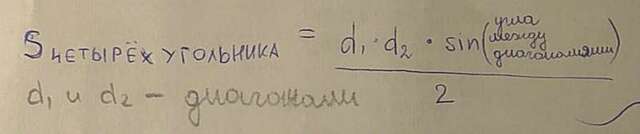 S четырёхугольника = d₁ · d₂ · sin(угла между диагоналями) / 2
d₁ и d₂ – диагонали